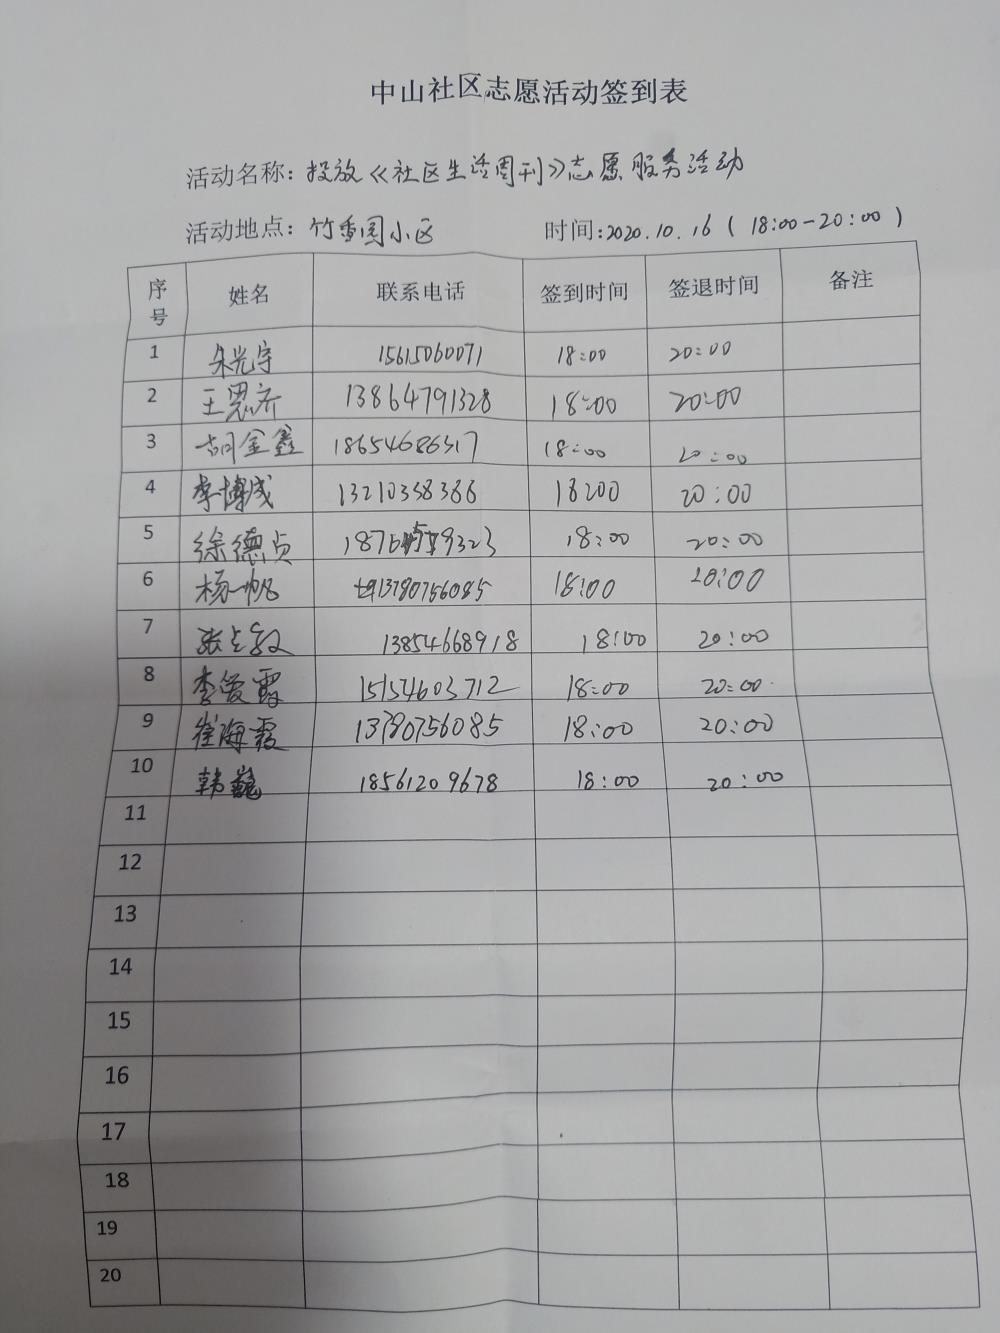 中山社区志愿活动签到表
活动名称：投放《社区生活周刊》志愿服务活动
活动地点：竹香园小区 时间：2020.10.16（18:00-20:00）
序号 姓名 联系电话 签到时间 签退时间 备注
1 朱光宇 15615060071 18:00 20:00
2 王恩齐 13864791328 18:00 20:00
3 胡金鑫 18654686317 18:00 20:00
4 李博成 13210358366 18:00 20:00
5 徐德贞 18:00 20:00
6 杨帆 13780756085 18:00 20:00
7 13854668918 18:00 20:00
8 李爱霞 15154603712 18:00 20:00
9 崔海霞 13780756085 18:00 20:00
10 韩巍 18561209678 18:00 20:00
11
12
13
14
15
16
17
18
19
20